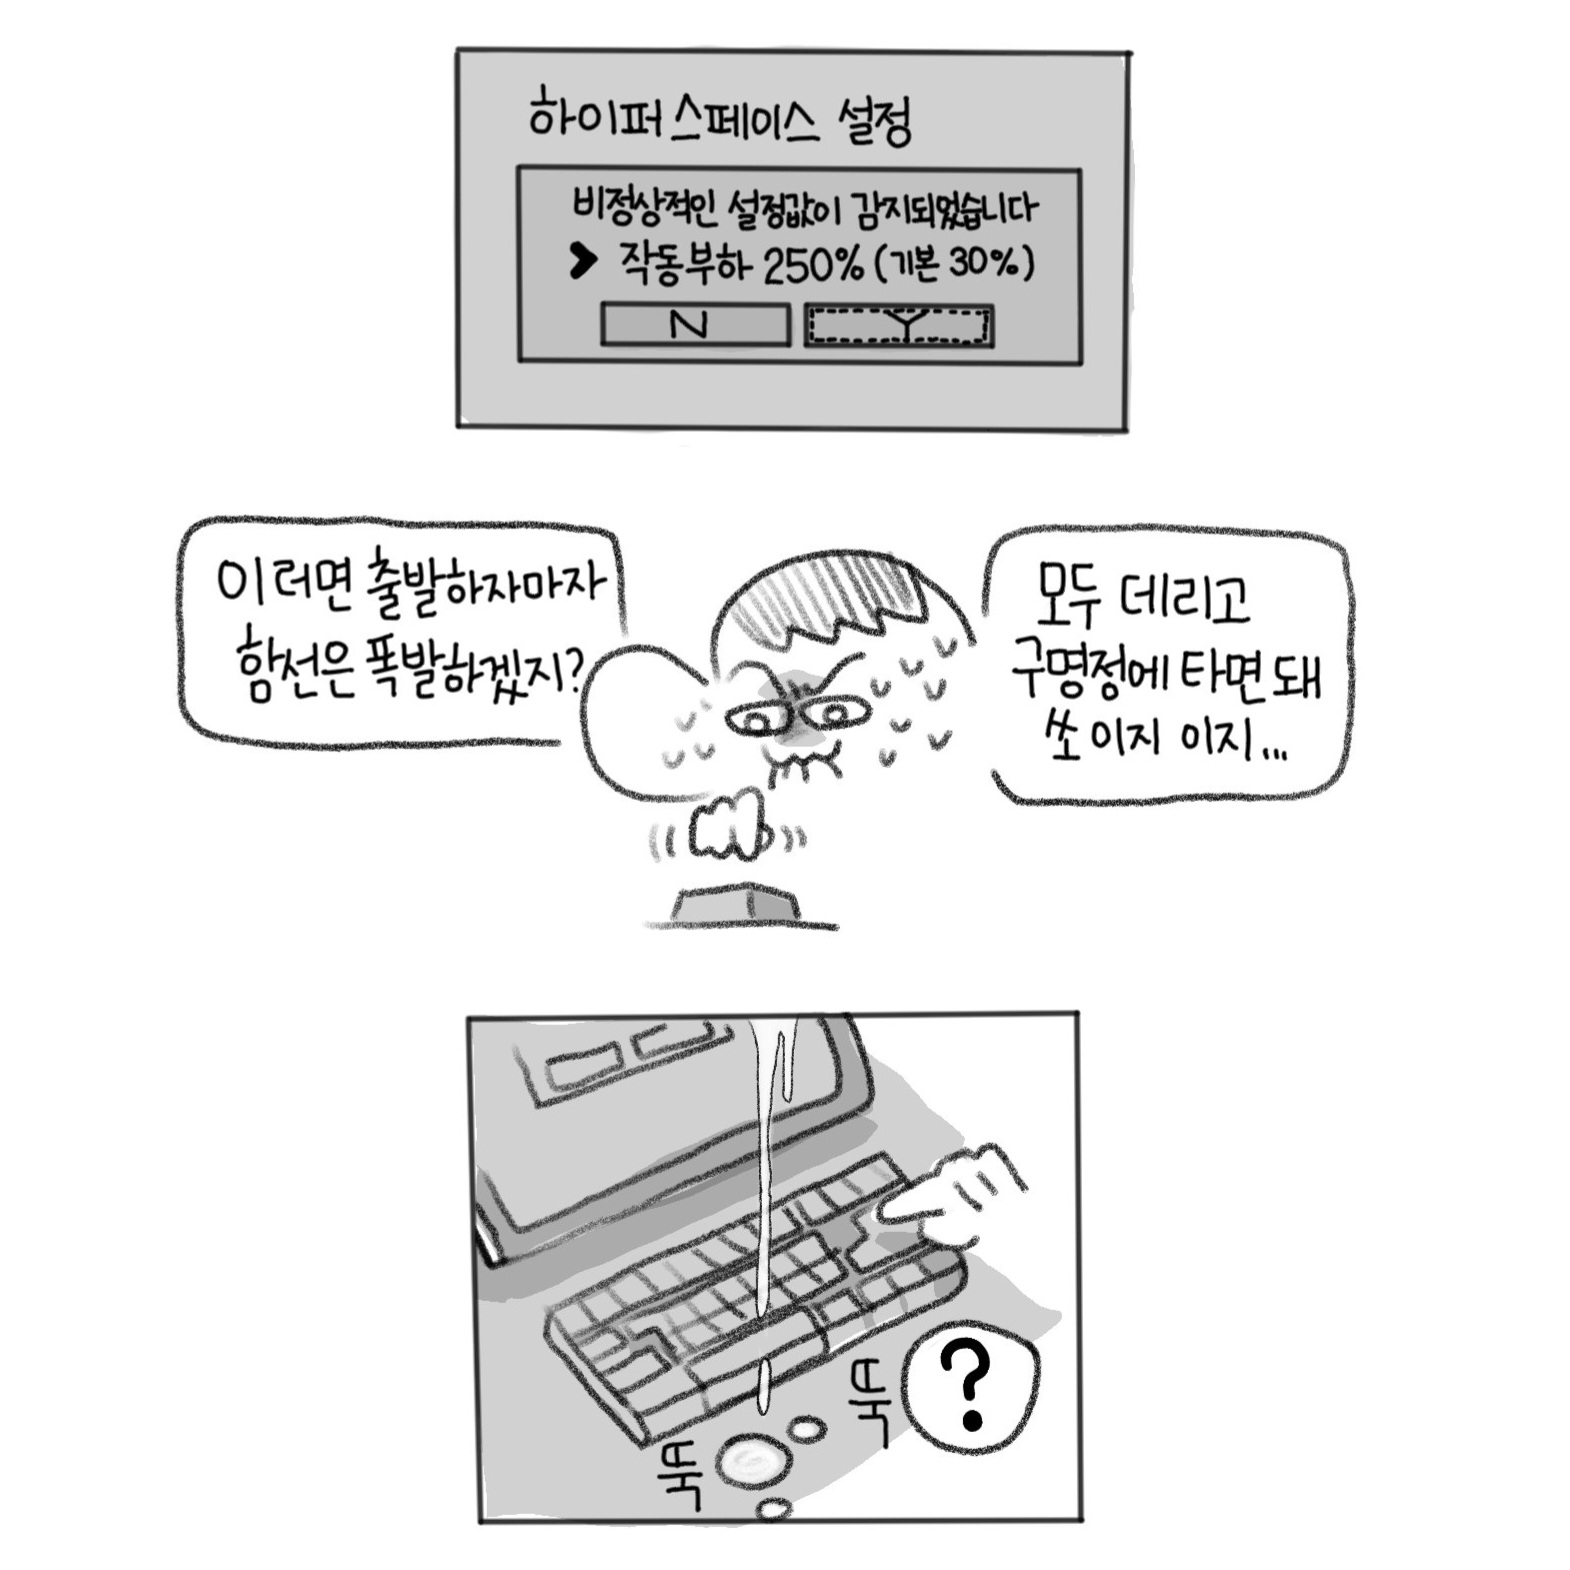 하이퍼스페이스 설정
비정상적인 설정값이 감지되었습니다
> 작동부하 250% (기본 30%)
N Y
이러면 출발하자마자
함선은 폭발하겠지?
모두 데리고
구명정에 타면 돼
쏘 이지 이지...
뚝
?
뚝